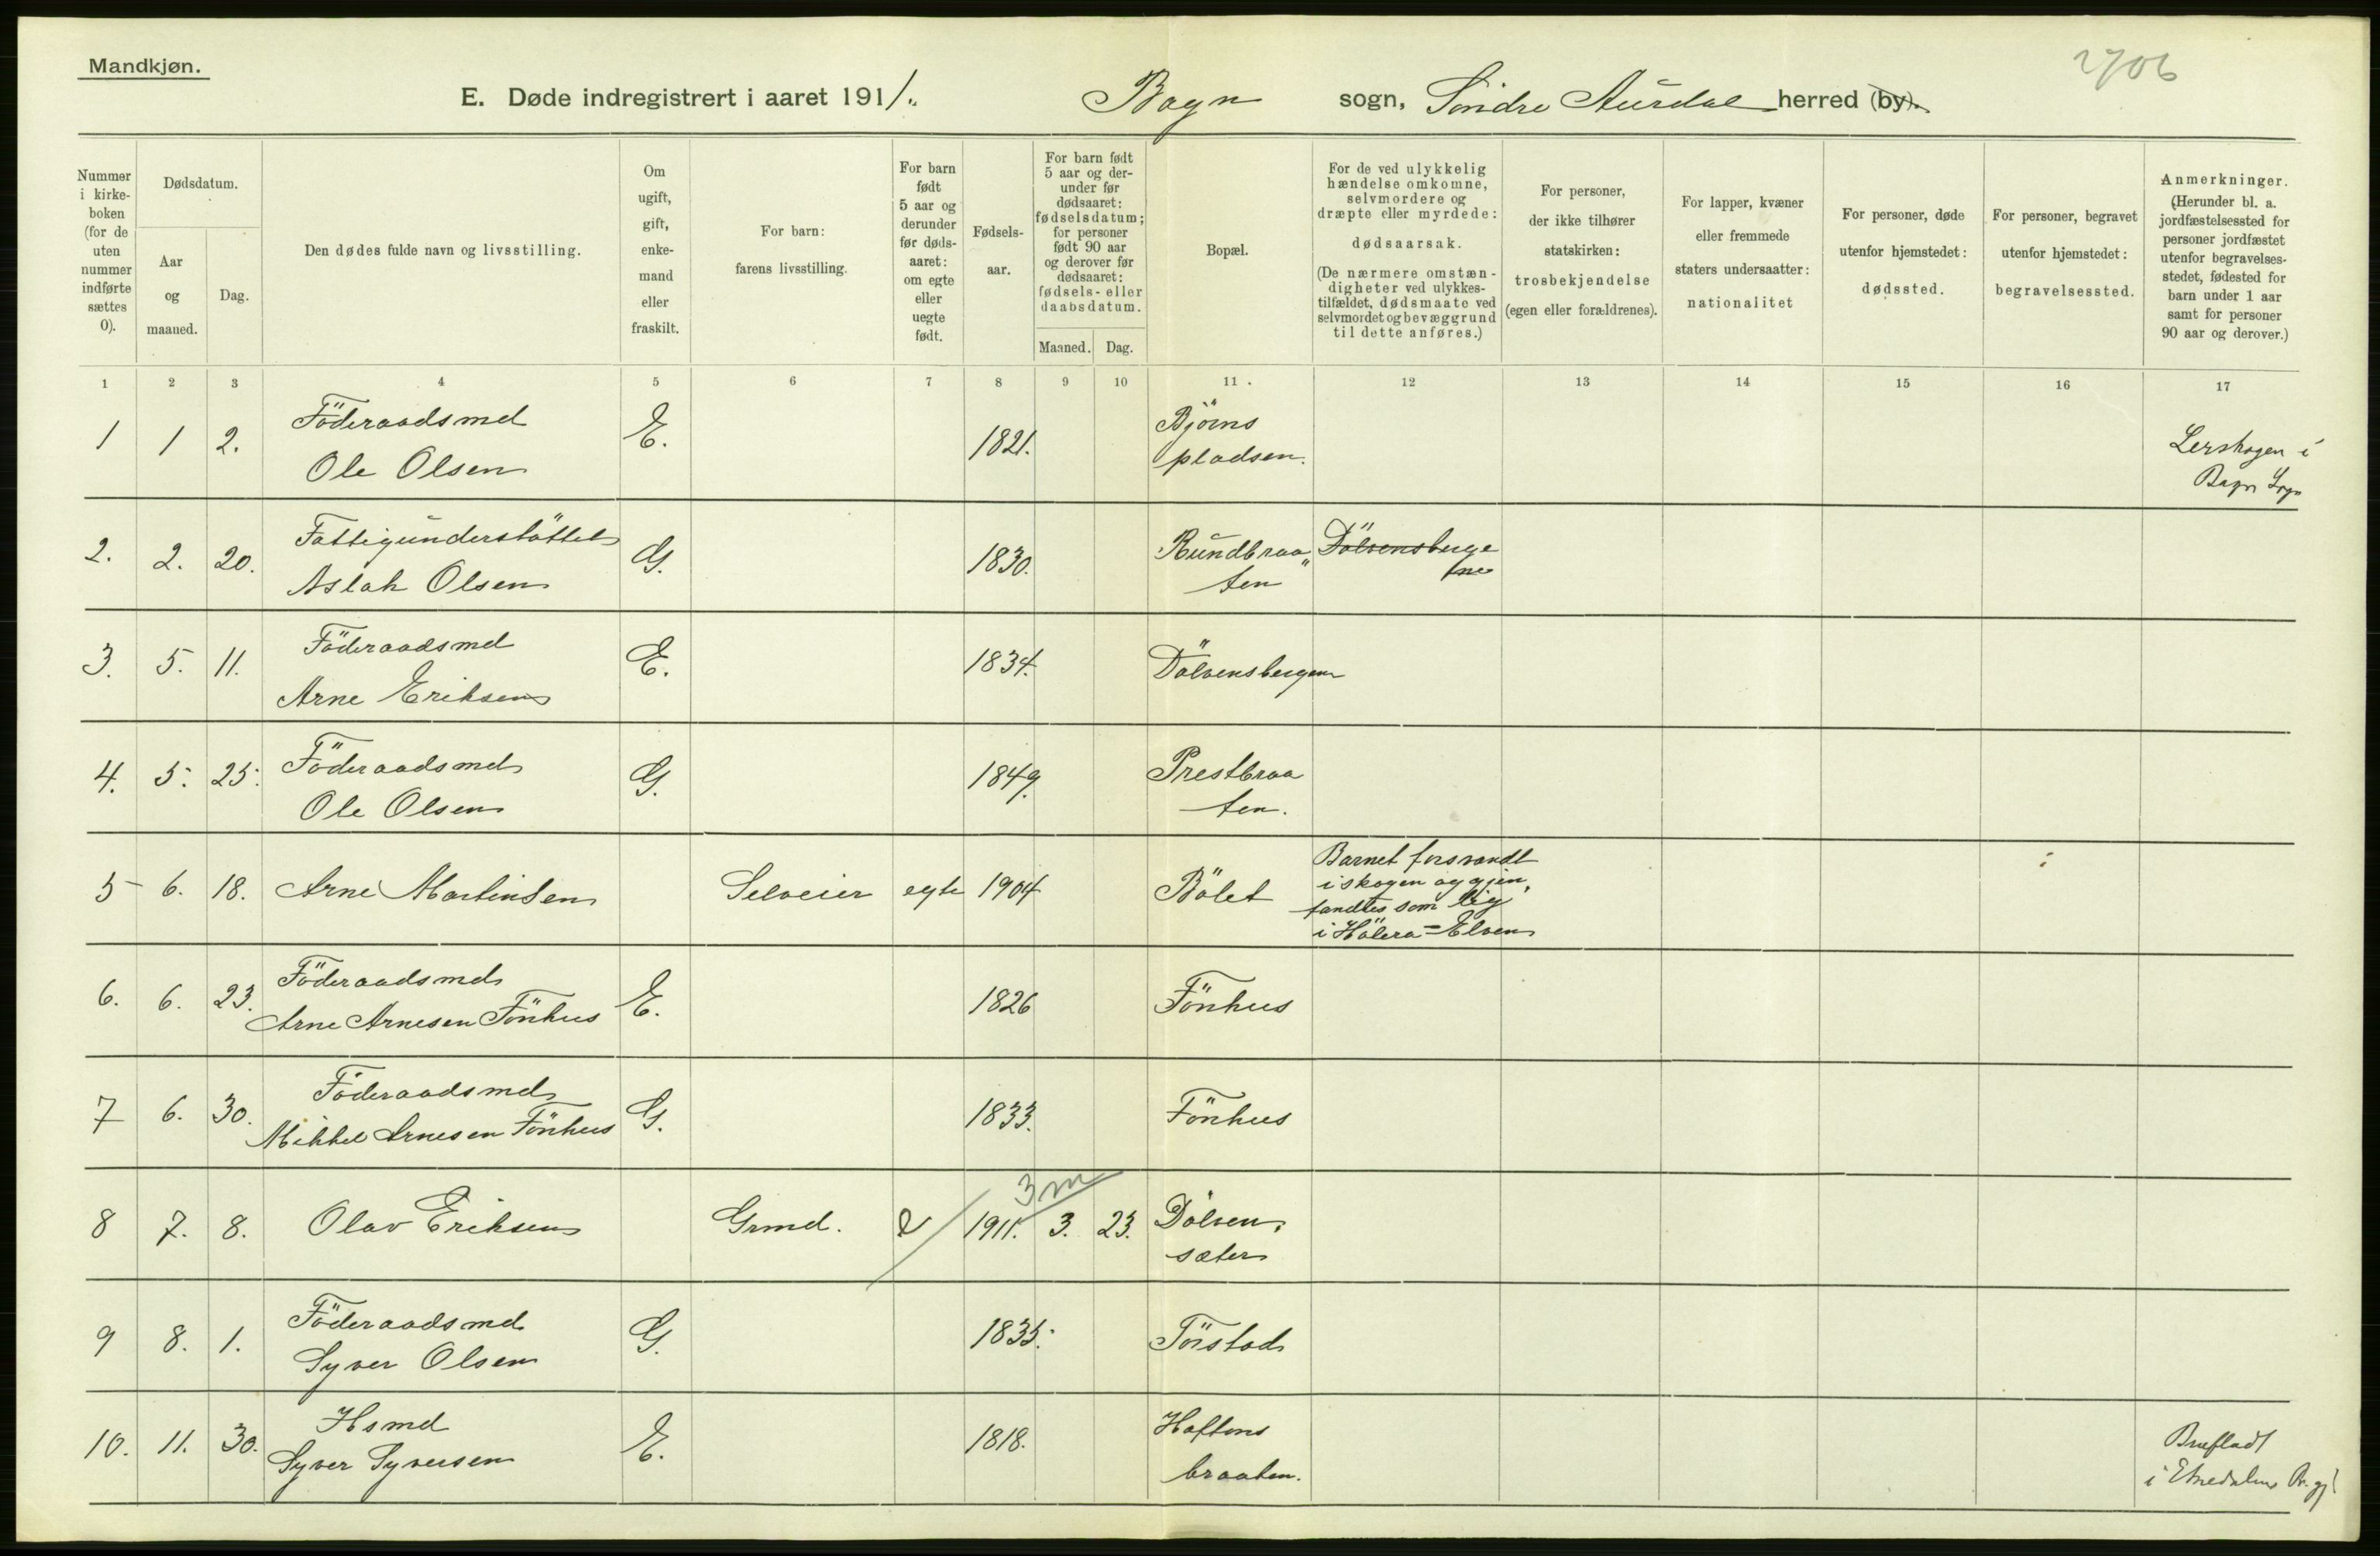 Mandkjøn.
2706
E. Døde indregistrert i aaret 1911. Bagn sogn, Söndre Aurdal herred (by).
Nummer i kirke-boken (for de uten nummer indførte sættes 0).
Dødsdatum.
Aar og maaned.
Dag.
Den dødes fulde navn og livsstilling.
Om ugift, gift, enke-mand eller fraskilt.
For barn: farens livsstilling.
For barn født 5 aar og derunder før døds-aaret: om egte eller uegte født.
Fødsels-aar.
For barn født 5 aar og der-under før dødsaaret: fødselsdatum; for personer født 90 aar og derover før dødsaaret: fødsels- eller daabsdatum.
Maaned. Dag.
Bopæl.
For de ved ulykkelig hændelse omkomne, selvmordere og dræpte eller myrdede: dødsaarsak. (De nærmere omstæn-digheter ved ulykkes-tilfældet, dødsmaate ved selvmordet og bevæggrund til dette anføres.)
For personer, der ikke tilhører statskirken: trosbekjendelse (egen eller forældrenes).
For lapper, kvæner eller fremmede staters undersaatter: nationalitet
For personer, døde utenfor hjemstedet: dødssted.
For personer, begravet utenfor hjemstedet: begravelsessted.
Anmerkninger. (Herunder bl. a. jordfæstelsessted for personer jordfæstet utenfor begravelses-stedet, fødested for barn under 1 aar samt for personer 90 aar og derover.)
1 2 3 4 5 6 7 8 9 10 11 . 12 13 14 15 16 17
1 1 2. Föderaadsmd E. 1821. Björns
Ole Olsen pladsen.
Lershagen i
Bagn Sogn
2. 2. 20. Fattigunderstöttet G. 1830. Rundbraa„ Dölvensberge
Aslak Olsen ten ne
3. 5. 11. Föderaadsmd E. 1834. Dölvensbergene
Arne Eriksen
4. 5. 25. Föderaadsmd G. 1849. Prestbraa
Ole Olsen ten.
5 6. 18. Arne Martinsen Selveier egte 1904 Bölet Barnet forsvandt
i skogen og gjen,
fandtes som lig
i Hölera=Elven
6. 6. 23. Föderaadsmd E. 1826 Fönhus
Arne Arnesen Fönhus
7 6. 30. Föderaadsmd G. 1833. Fönhus
Mikkel Arnesen Fönhus
3 m
8 7. 8. Olav Eriksen Grmd. e 1911. 3. 23. Dölven,
sæter
9 8. 1. Föderaadsmd G. 1835. Törstad
Syver Olsen
10. 11. 30. Hsmd E. 1818. Haftons
Syver Syversen braaten.
Brufladt
i Etnedalens Pr.gj.